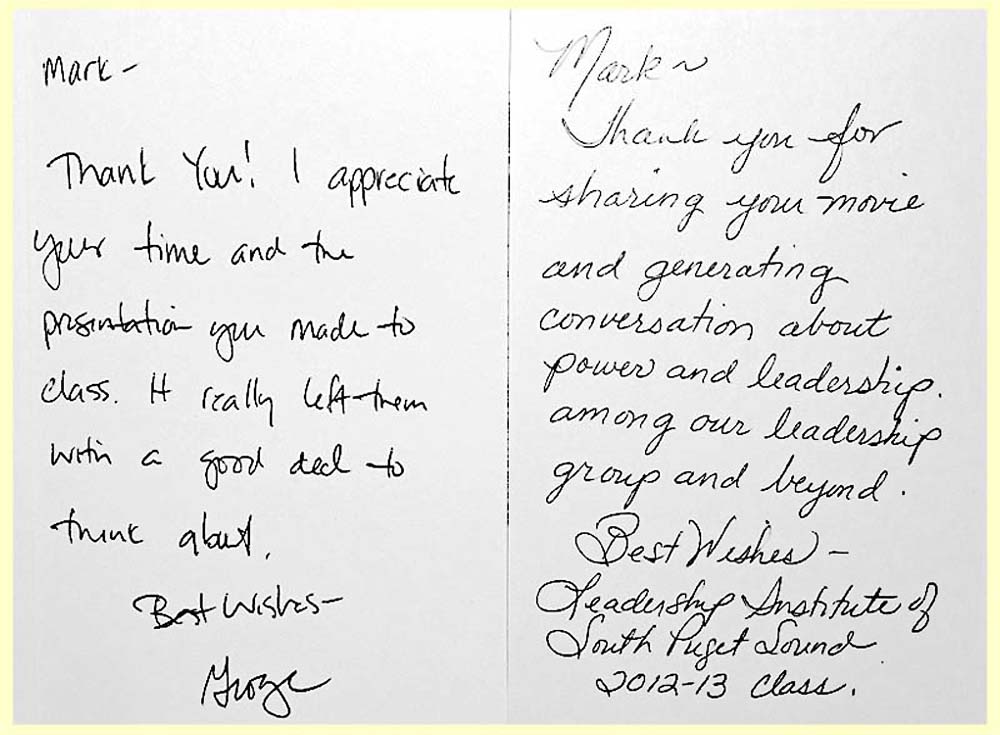 Mark -
Thank You! I appreciate
your time and the
presentation you made to
class. It really left them
with a good deal to
think about.
Best Wishes-
George
Mark ~
Thank you for
sharing your movie
and generating
conversation about
power and leadership.
among our leadership
group and beyond.
Best Wishes -
Leadership Institute of
South Puget Sound
2012-13 class.